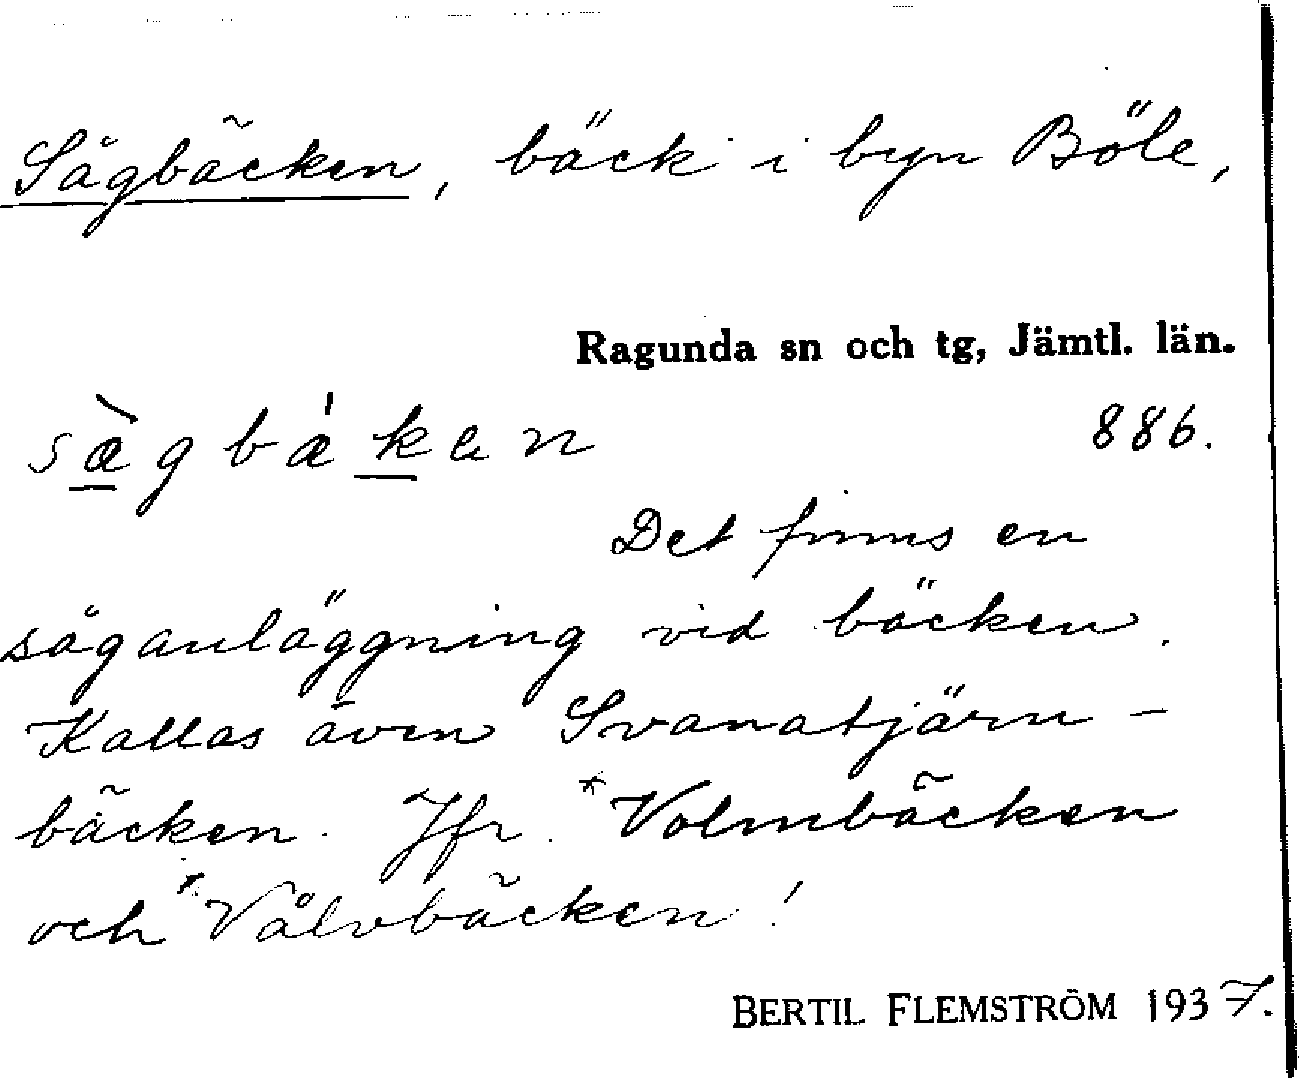 Sågbäcken, bäck i byn Böle,
Ragunda sn och tg, Jämtl. län.
886.
Det finns en
såganläggning vid bäcken.
Kallas även Svanatjärn-
bäcken. Jfr. *Volmbäcken
och *Vålvbäcken!
BERTIL FLEMSTRÖM 1937.